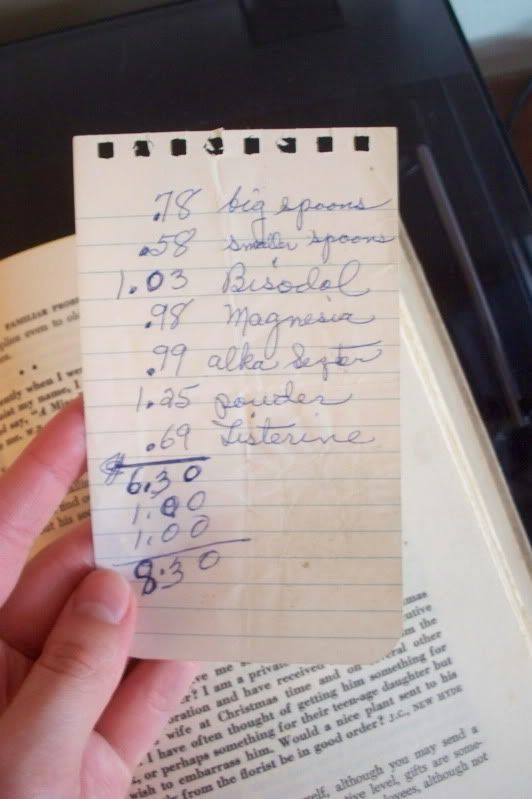 .78 big spoons
.58 smaller spoons
1.03 Bisodol
.98 Magnesia
.99 alka Seltzer
1.25 powder
.69 Listerine
$6.30
1.00
1.00
8.30
FAMILIAR
even to
ently when I
my name, I
say, "A
me.
find
but his
the
ve me
r? I am a private
oration and have received
wife at Christmas time and on several other
I have often thought of getting him something for
, or perhaps something for their teen-age daughter but
wish to embarrass him. Would a nice plant sent to his
from the florist be in good order? J.C., NEW HYDE
self, although you may send a
tive level, gifts are some-
yees, although not